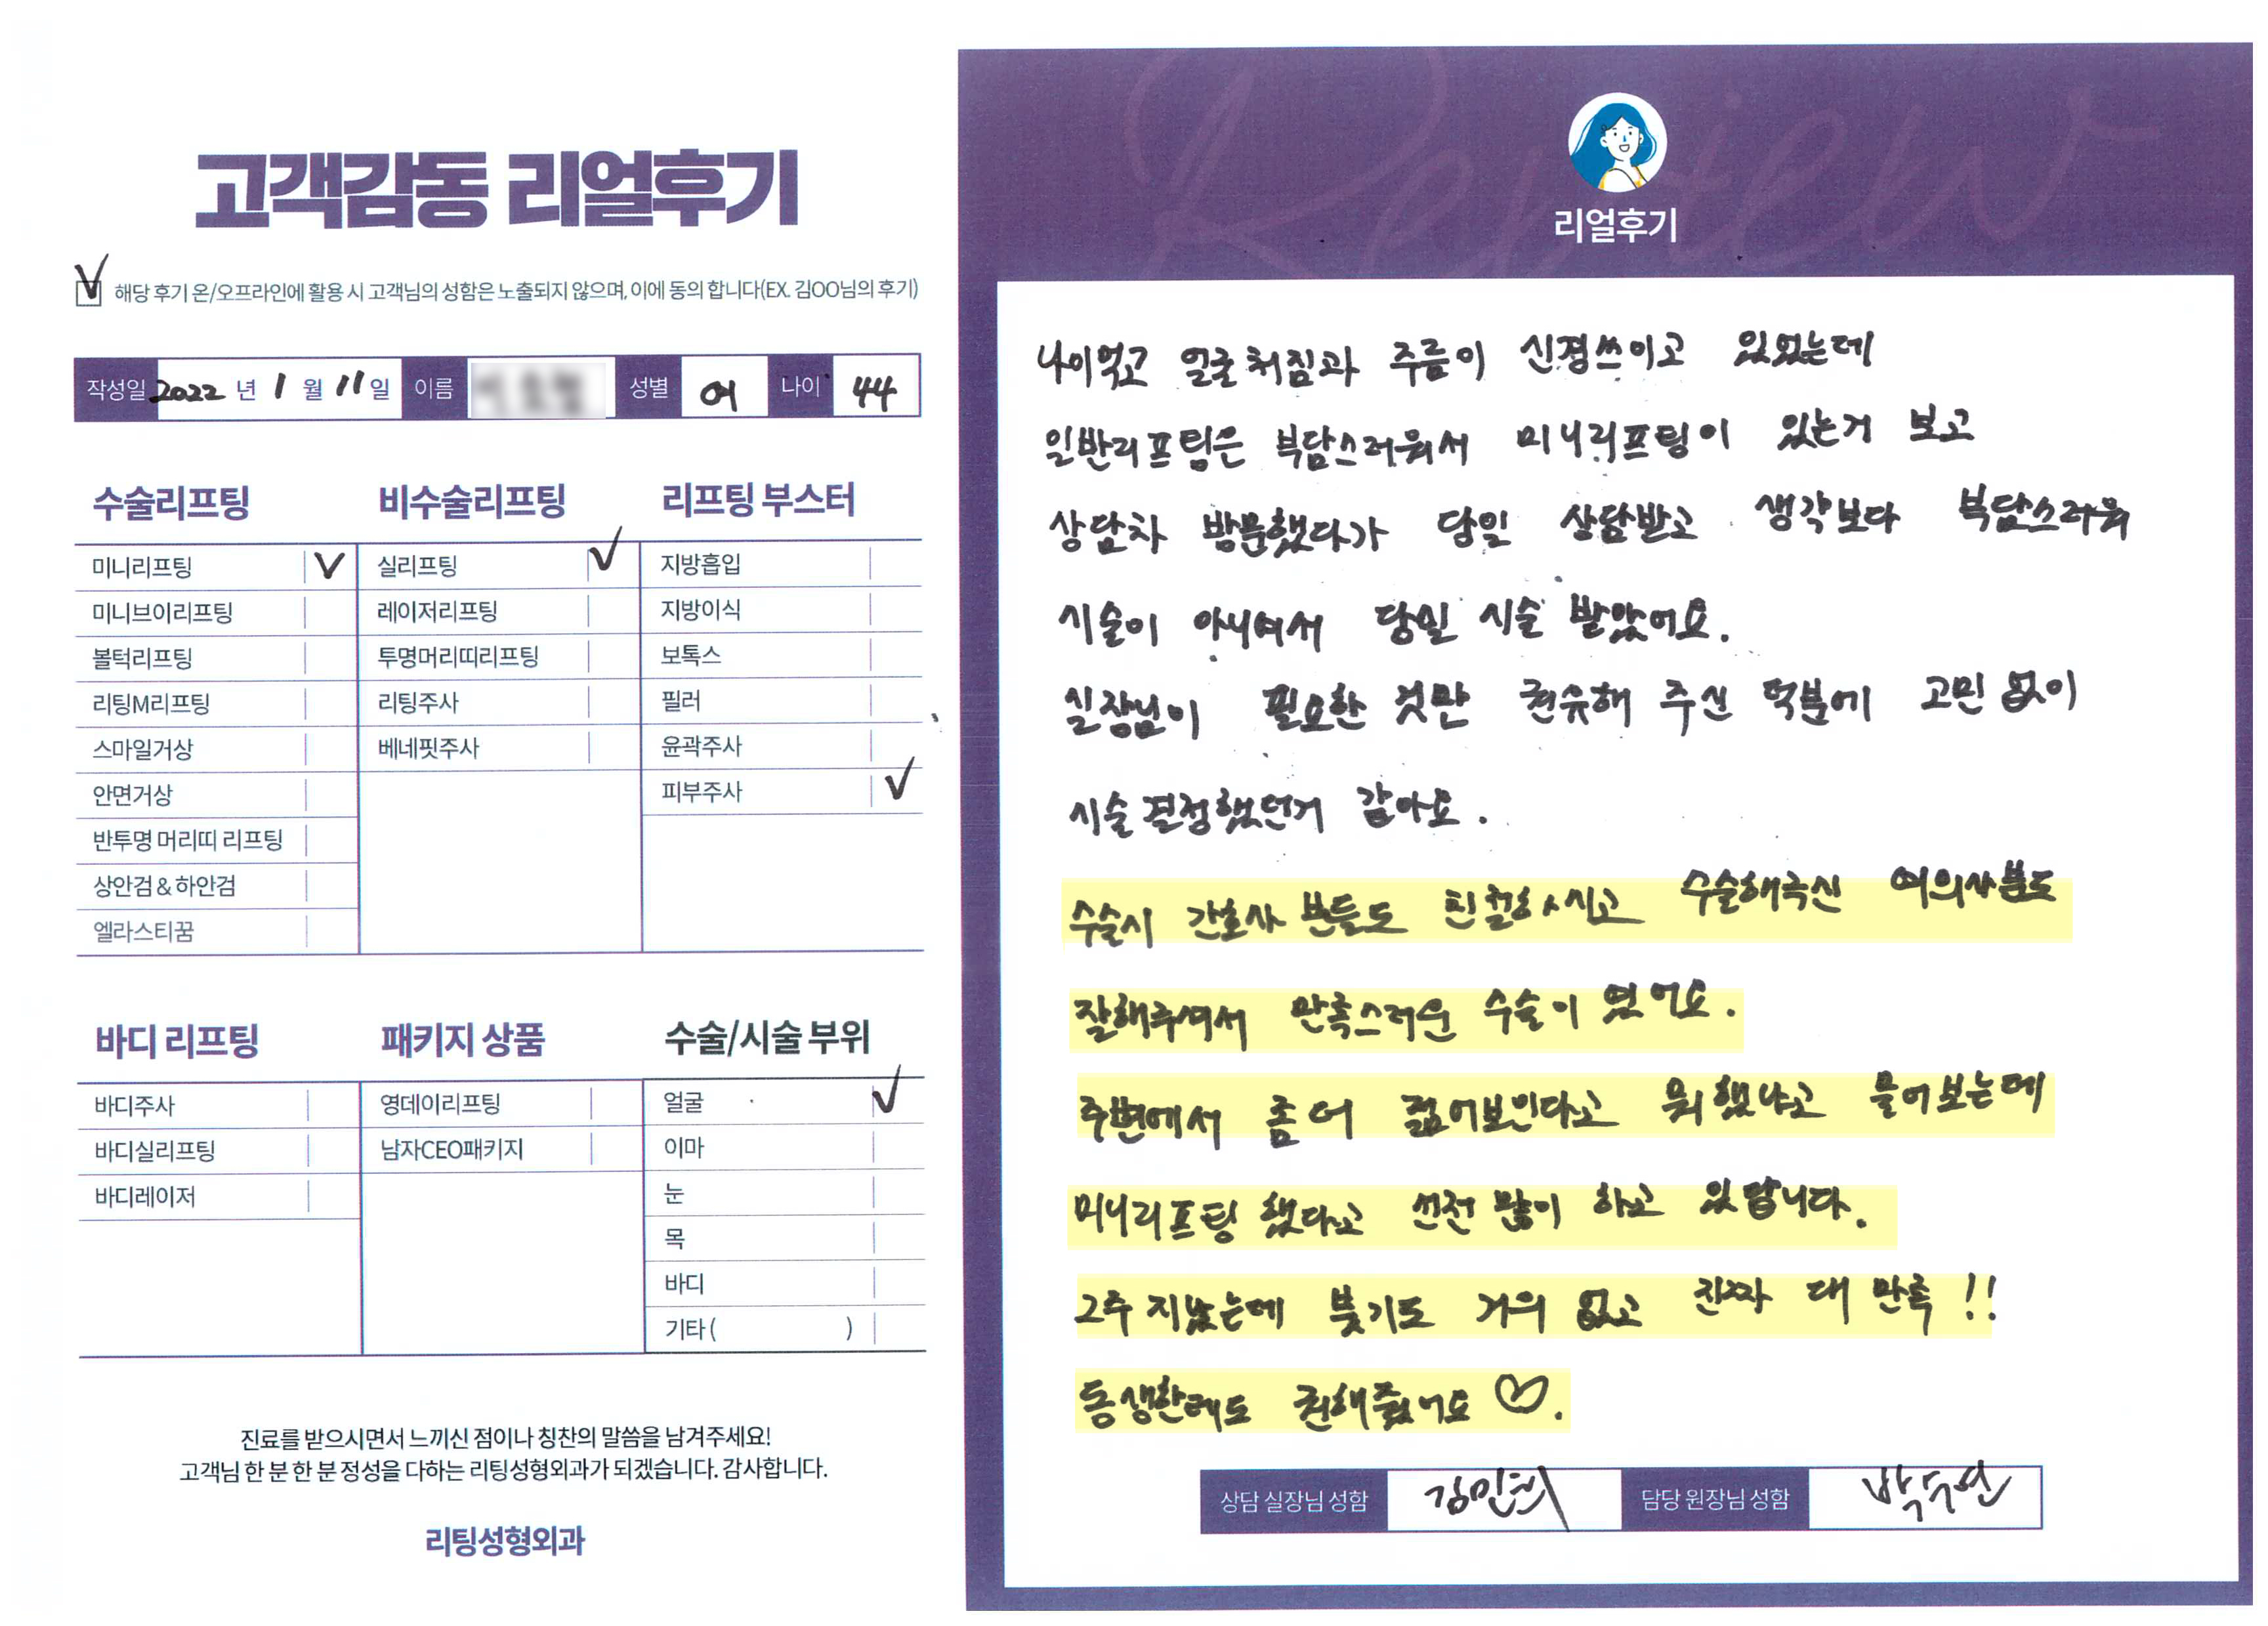 고객감동 리얼후기
✓ 해당 후기 온/오프라인에 활용 시 고객님의 성함은 노출되지 않으며, 이에 동의 합니다(EX. 김OO님의 후기)
작성일 2022 년 1 월 11 일 이름 성별 여 나이 44
수술리프팅
미니리프팅 ✓
미니브이리프팅
볼턱리프팅
리팅M리프팅
스마일거상
안면거상
반투명 머리띠 리프팅
상안검 & 하안검
엘라스티꿈
비수술리프팅
실리프팅 ✓
레이저리프팅
투명머리띠리프팅
리팅주사
베네핏주사
리프팅 부스터
지방흡입
지방이식
보톡스
필러
윤곽주사
피부주사 ✓
바디 리프팅
바디주사
바디실리프팅
바디레이저
패키지 상품
영데이리프팅
남자CEO패키지
수술/시술 부위
얼굴 ✓
이마
눈
목
바디
기타 ( )
진료를 받으시면서 느끼신 점이나 칭찬의 말씀을 남겨주세요!
고객님 한 분 한 분 정성을 다하는 리팅성형외과가 되겠습니다. 감사합니다.
리팅성형외과
Review
리얼후기
나이먹고 얼굴 처짐과 주름이 신경쓰이고 있었는데
일반리프팅은 부담스러워서 미니리프팅이 있는거 보고
상담차 방문했다가 당일 상담받고 생각보다 부담스러워
시술이 아니여서 당일 시술 받았어요.
실장님이 필요한 것만 권유해 주신 덕분에 고민 없이
시술 결정했던거 같아요.
수술시 간호사 분들도 친절하시고 수술해주신 여의사분도
잘해주셔서 만족스러운 수술이 였어요.
주변에서 좀 더 젊어보인다고 뭐 했냐고 물어보는데
미니리프팅 했다고 선전 많이 하고 있답니다.
2주 지났는데 붓기도 거의 없고 진짜 대 만족 !!
동생한테도 권해줬어요 ♡.
상담 실장님 성함 김민희 담당 원장님 성함 박수연